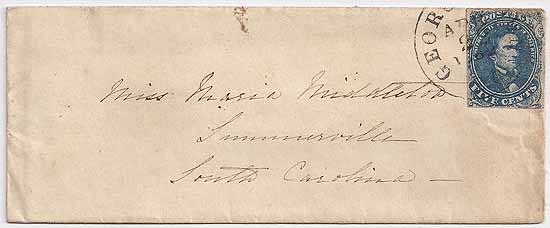 GEOR
POSTAGE
FIVE CENTS
Miss Maria Middleton
Summerville
South Carolina